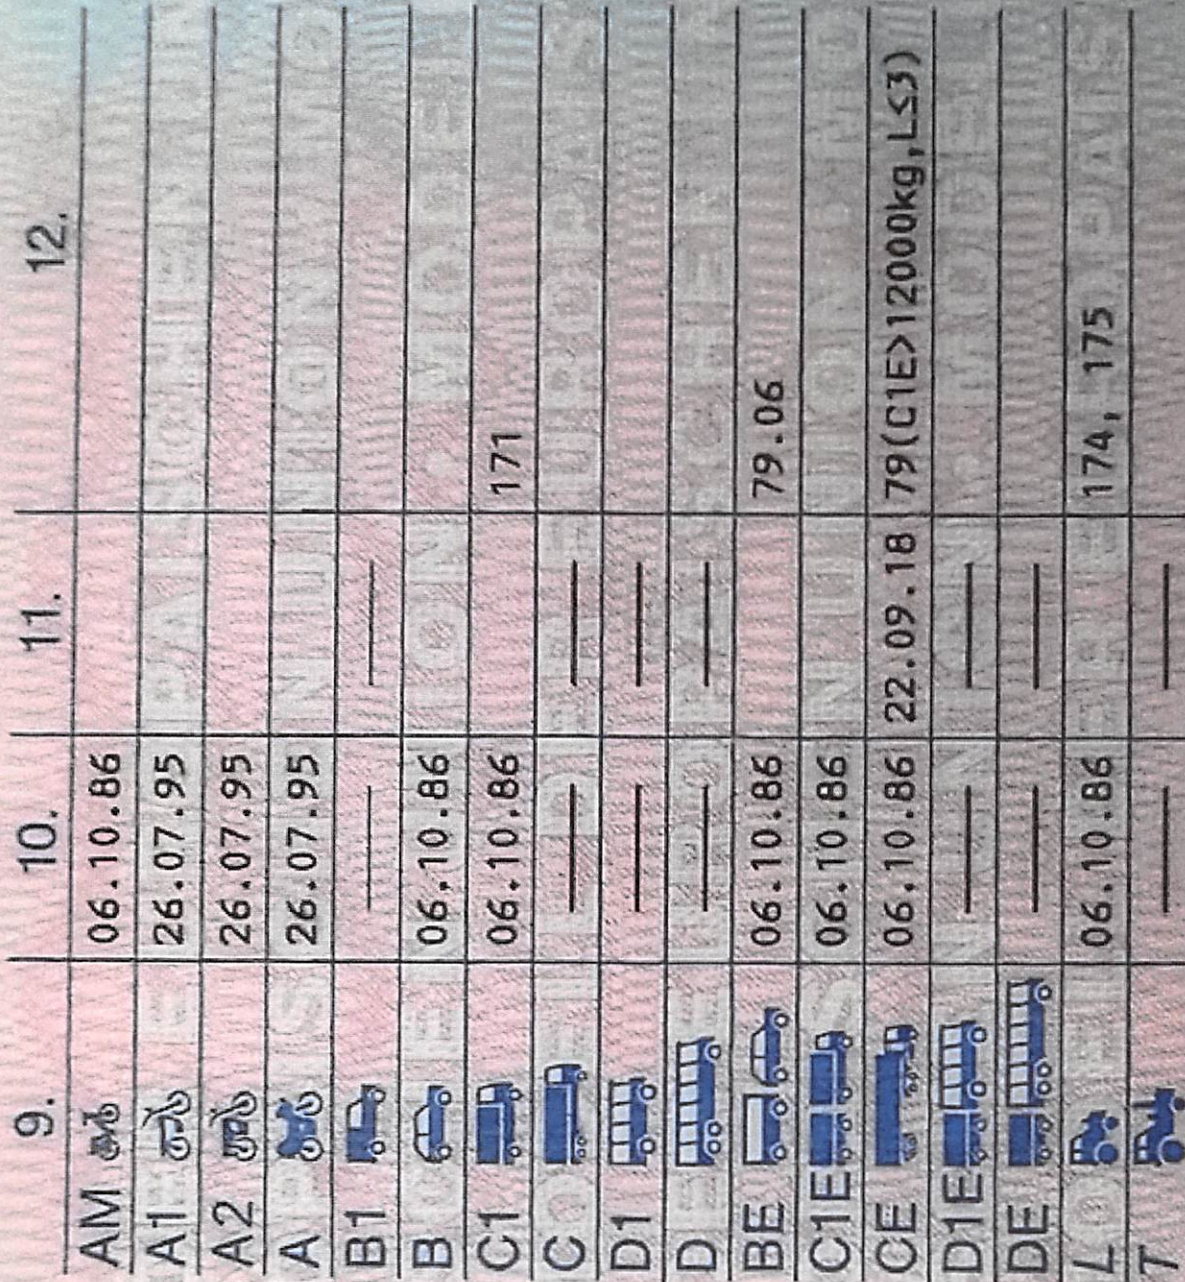 9. 10. 11. 12.
AM 06.10.86
A1 26.07.95
A2 26.07.95
A 26.07.95
B1 — —
B 06.10.86
C1 06.10.86 171
C — —
D1 — —
D — —
BE 06.10.86 79.06
C1E 06.10.86
CE 06.10.86 22.09.18 79(C1E>12000kg,L≤3)
D1E — —
DE — —
L 06.10.86 174, 175
T — —